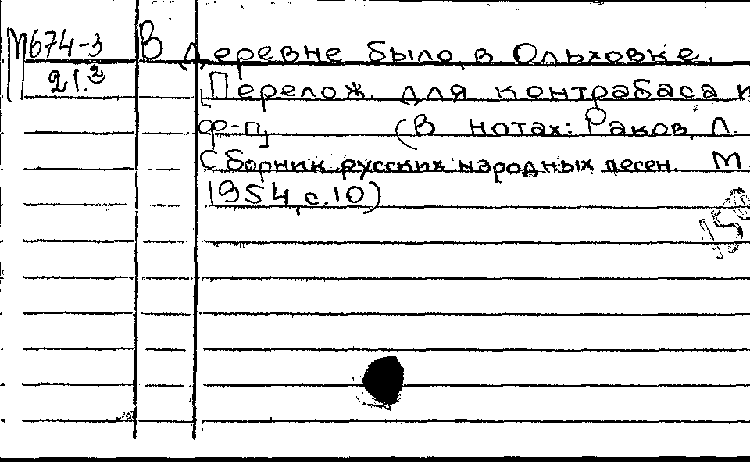 М674-3 В деревне было в Ольховке.
21.3 Перелож. для контрабаса и
ф-п (В нотах: Раков, Л.
Сборник русских народных песен. М.
1954, с.10)